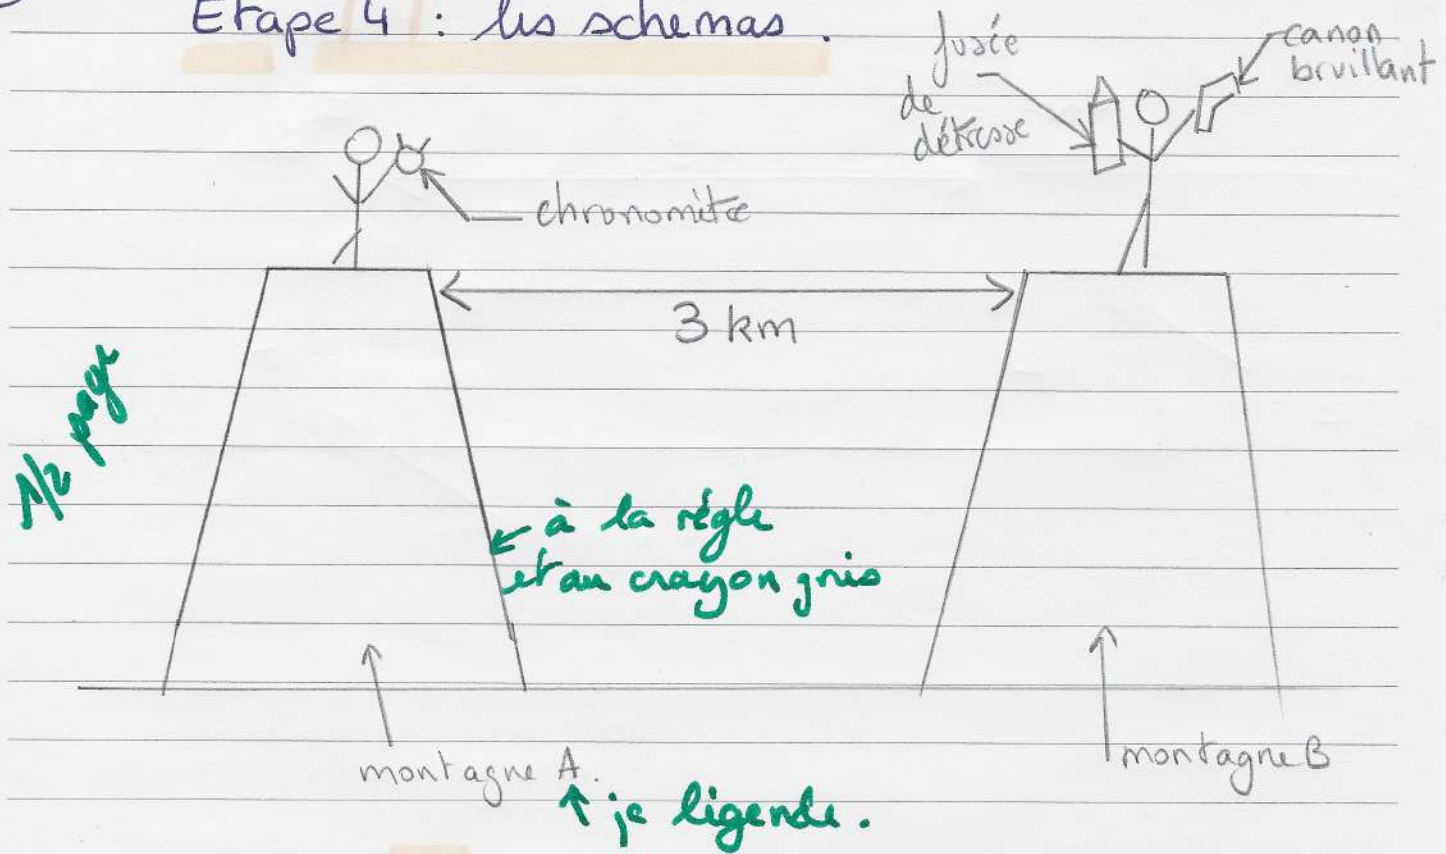 Etape 4 : les schemas.
fusée
de
détresse
canon
bruillant
chronomètre
3 km
1/2 page
à la régle
et au crayon gris
montagne A.
montagne B
↑ je légende.